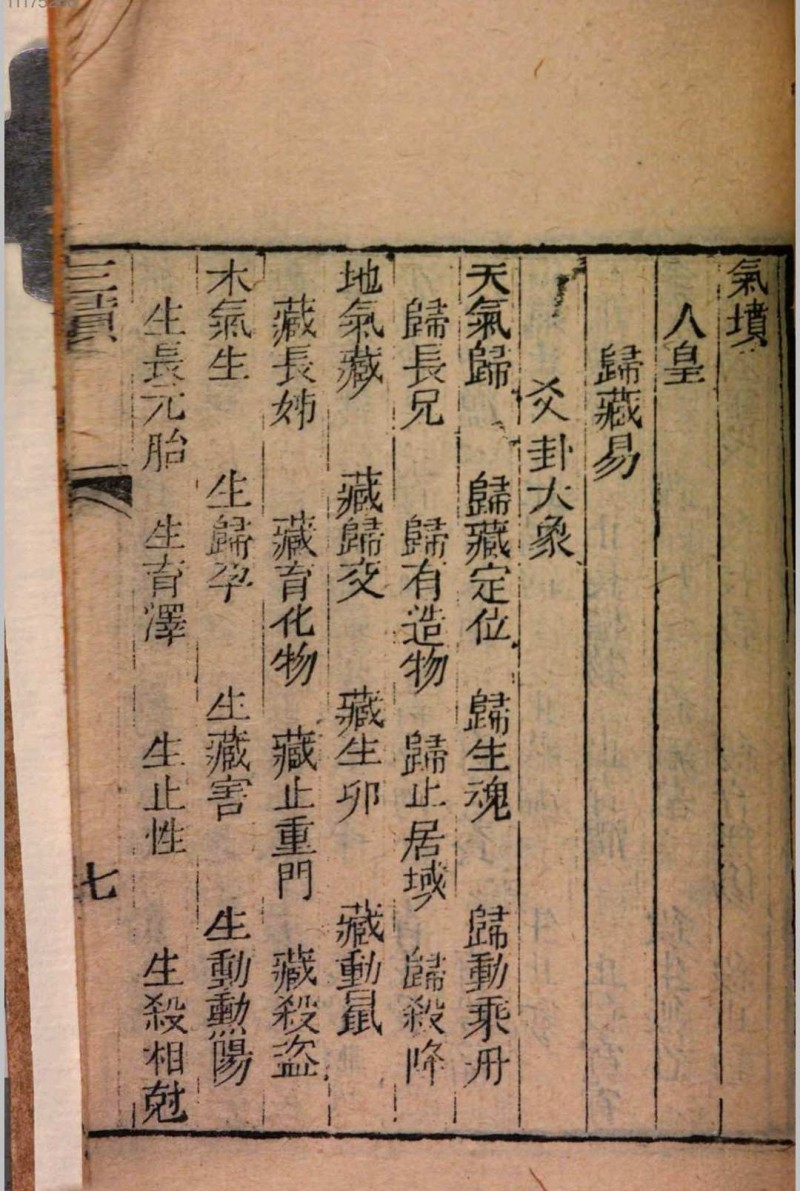 氣墳
人皇
歸藏易
爻卦大象
天氣歸 歸藏定位 歸生魂 歸動乘舟
歸長兄 歸有造物 歸止居域 歸殺降
地氣藏 藏歸交 藏生卯 藏動鼠
藏長姊 藏育化物 藏止重門 藏殺盗
木氣生 生歸孕 生藏害 生動勲陽
生長元胎 生育澤 生止性 生殺相尅
三墳
七